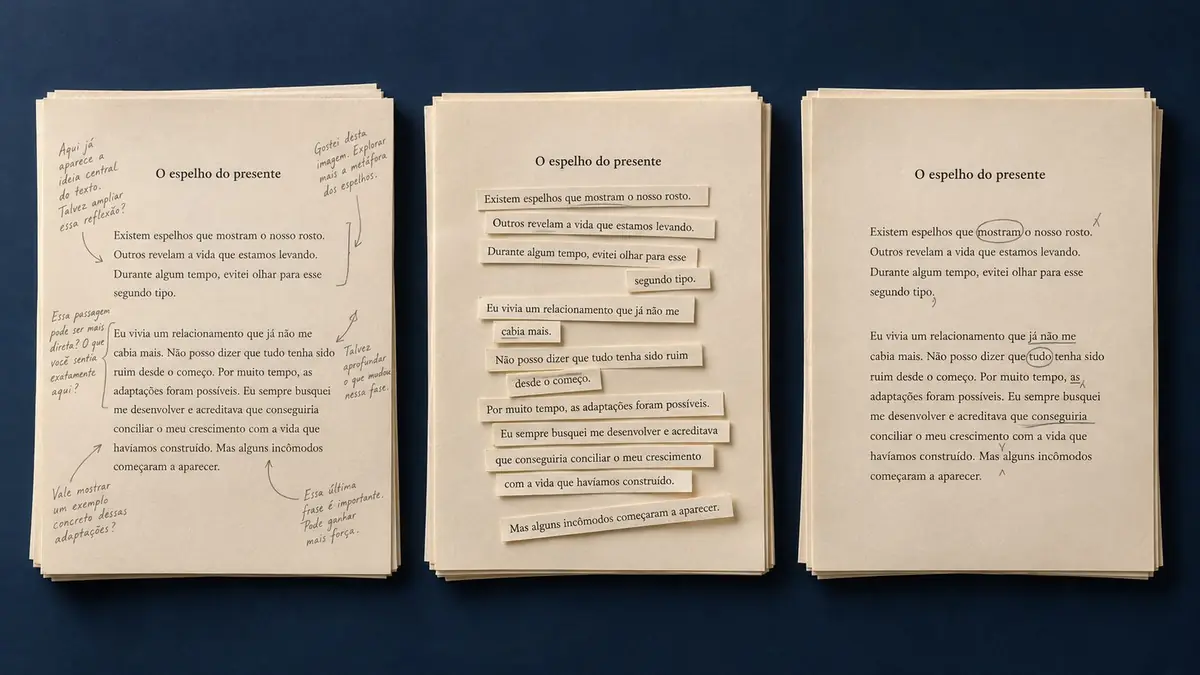 Aqui já
aparece a
ideia central
do texto.
Talvez ampliar
essa reflexão?
Gostei desta
imagem. Explorar
mais a metáfora
dos espelhos.
O espelho do presente
Existem espelhos que mostram o nosso rosto.
Outros revelam a vida que estamos levando.
Durante algum tempo, evitei olhar para esse
segundo tipo.
Essa passagem
pode ser mais
direta? O que
você sentia
exatamente
aqui?
Eu vivia um relacionamento que já não me
cabia mais. Não posso dizer que tudo tenha sido
ruim desde o começo. Por muito tempo, as
adaptações foram possíveis. Eu sempre busquei
me desenvolver e acreditava que conseguiria
conciliar o meu crescimento com a vida que
havíamos construído. Mas alguns incômodos
começaram a aparecer.
Talvez
aprofundar
o que mudou
nessa fase.
Vale mostrar
um exemplo
concreto dessas
adaptações?
Essa última
frase é importante.
Pode ganhar
mais força.
O espelho do presente
Existem espelhos que mostram o nosso rosto.
Outros revelam a vida que estamos levando.
Durante algum tempo, evitei olhar para esse
segundo tipo.
Eu vivia um relacionamento que já não me
cabia mais.
Não posso dizer que tudo tenha sido ruim
desde o começo.
Por muito tempo, as adaptações foram possíveis.
Eu sempre busquei me desenvolver e acreditava
que conseguiria conciliar o meu crescimento
com a vida que havíamos construído.
Mas alguns incômodos começaram a aparecer.
O espelho do presente
Existem espelhos que mostram o nosso rosto.
Outros revelam a vida que estamos levando.
Durante algum tempo, evitei olhar para esse
segundo tipo.
Eu vivia um relacionamento que já não me
cabia mais. Não posso dizer que tudo tenha sido
ruim desde o começo. Por muito tempo, as
adaptações foram possíveis. Eu sempre busquei
me desenvolver e acreditava que conseguiria
conciliar o meu crescimento com a vida que
havíamos construído. Mas alguns incômodos
começaram a aparecer.